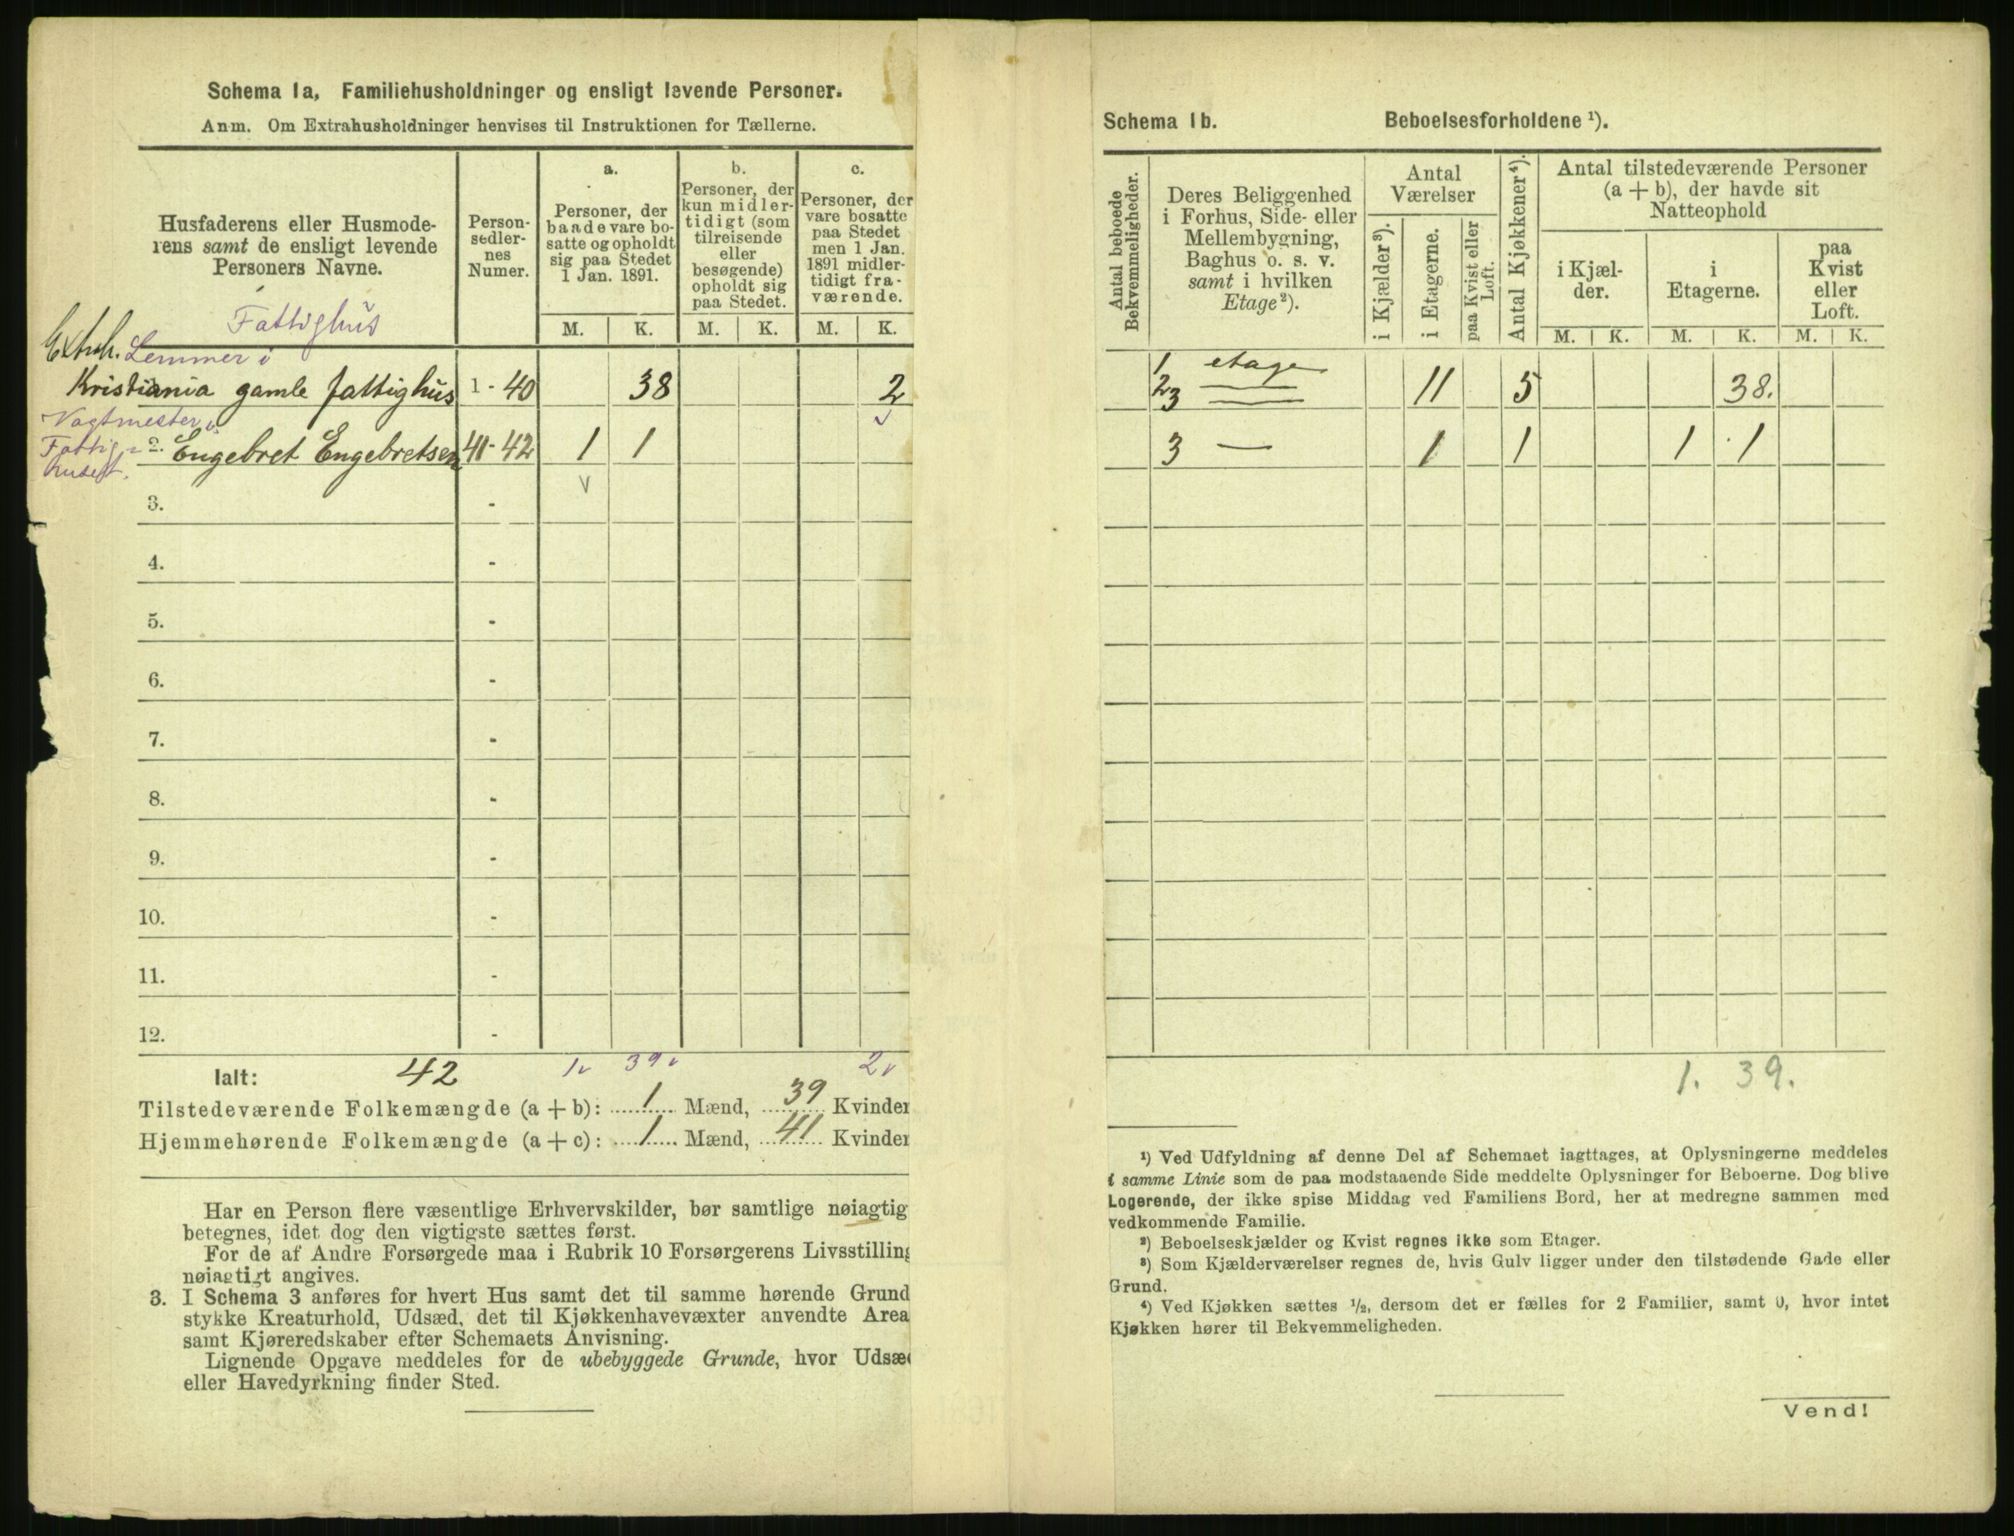 Schema 1a, Familiehusholdninger og ensligt levende Personer.
Anm. Om Extrahusholdninger henvises til Instruktionen for Tællerne.
Husfaderens eller Husmode-
rens samt de ensligt levende
Personers Navne.
Person-
sedler-
nes
Numer.
a.
Personer, der
baade vare bo-
satte og opholdt
sig paa Stedet
1 Jan. 1891.
b.
Personer, der
kun midler-
tidigt (som
tilreisende
eller
besøgende)
opholdt sig
paa Stedet.
c.
Personer, der
vare bosatte
paa Stedet
men 1 Jan.
1891 midler-
tidigt fra-
værende.
M. K. M. K. M. K.
Fattighus
Extrah. Lemmer i
Kristiania gamle fattighus 1 - 40 38 2
Vagtmester i
Fattig- 2. Engebret Engebretsen 41 - 42 1 1
huset.
3. -
4. -
5. -
6. -
7. -
8. -
9. -
10. -
11. -
12. -
Ialt: 42 1 39 2
Tilstedeværende Folkemængde (a + b): 1 Mænd, 39 Kvinder
Hjemmehørende Folkemængde (a + c): 1 Mænd, 41 Kvinder
Har en Person flere væsentlige Erhvervskilder, bør samtlige nøiagtig
betegnes, idet dog den vigtigste sættes først.
For de af Andre Forsørgede maa i Rubrik 10 Forsørgerens Livsstilling
nøiagtigt angives.
3. I Schema 3 anføres for hvert Hus samt det til samme hørende Grund
stykke Kreaturhold, Udsæd, det til Kjøkkenhavevæxter anvendte Area
samt Kjøreredskaber efter Schemaets Anvisning.
Lignende Opgave meddeles for de ubebyggede Grunde, hvor Udsæ
eller Havedyrkning finder Sted.
Schema 1b. Beboelsesforholdene ¹).
Antal beboede
Bekvemmeligheder.
Deres Beliggenhed
i Forhus, Side- eller
Mellembygning,
Baghus o. s. v.
samt i hvilken
Etage²).
Antal
Værelser
i Kjælder³).
i Etagerne.
paa Kvist eller
Loft.
Antal Kjøkkener⁴).
Antal tilstedeværende Personer
(a + b), der havde sit
Natteophold
i Kjæl-
der.
i
Etagerne.
paa
Kvist
eller
Loft.
M. K. M. K. M. K.
1 etage
2 — 11 5 38.
3 —
3 — 1 1 1 1
1. 39.
¹) Ved Udfyldning af denne Del af Schemaet iagttages, at Oplysningerne meddeles
i samme Linie som de paa modstaaende Side meddelte Oplysninger for Beboerne. Dog blive
Logerende, der ikke spise Middag ved Familiens Bord, her at medregne sammen med
vedkommende Familie.
²) Beboelseskjælder og Kvist regnes ikke som Etager.
³) Som Kjælderværelser regnes de, hvis Gulv ligger under den tilstødende Gade eller
Grund.
⁴) Ved Kjøkken sættes ½, dersom det er fælles for 2 Familier, samt 0, hvor intet
Kjøkken hører til Bekvemmeligheden.
Vend!